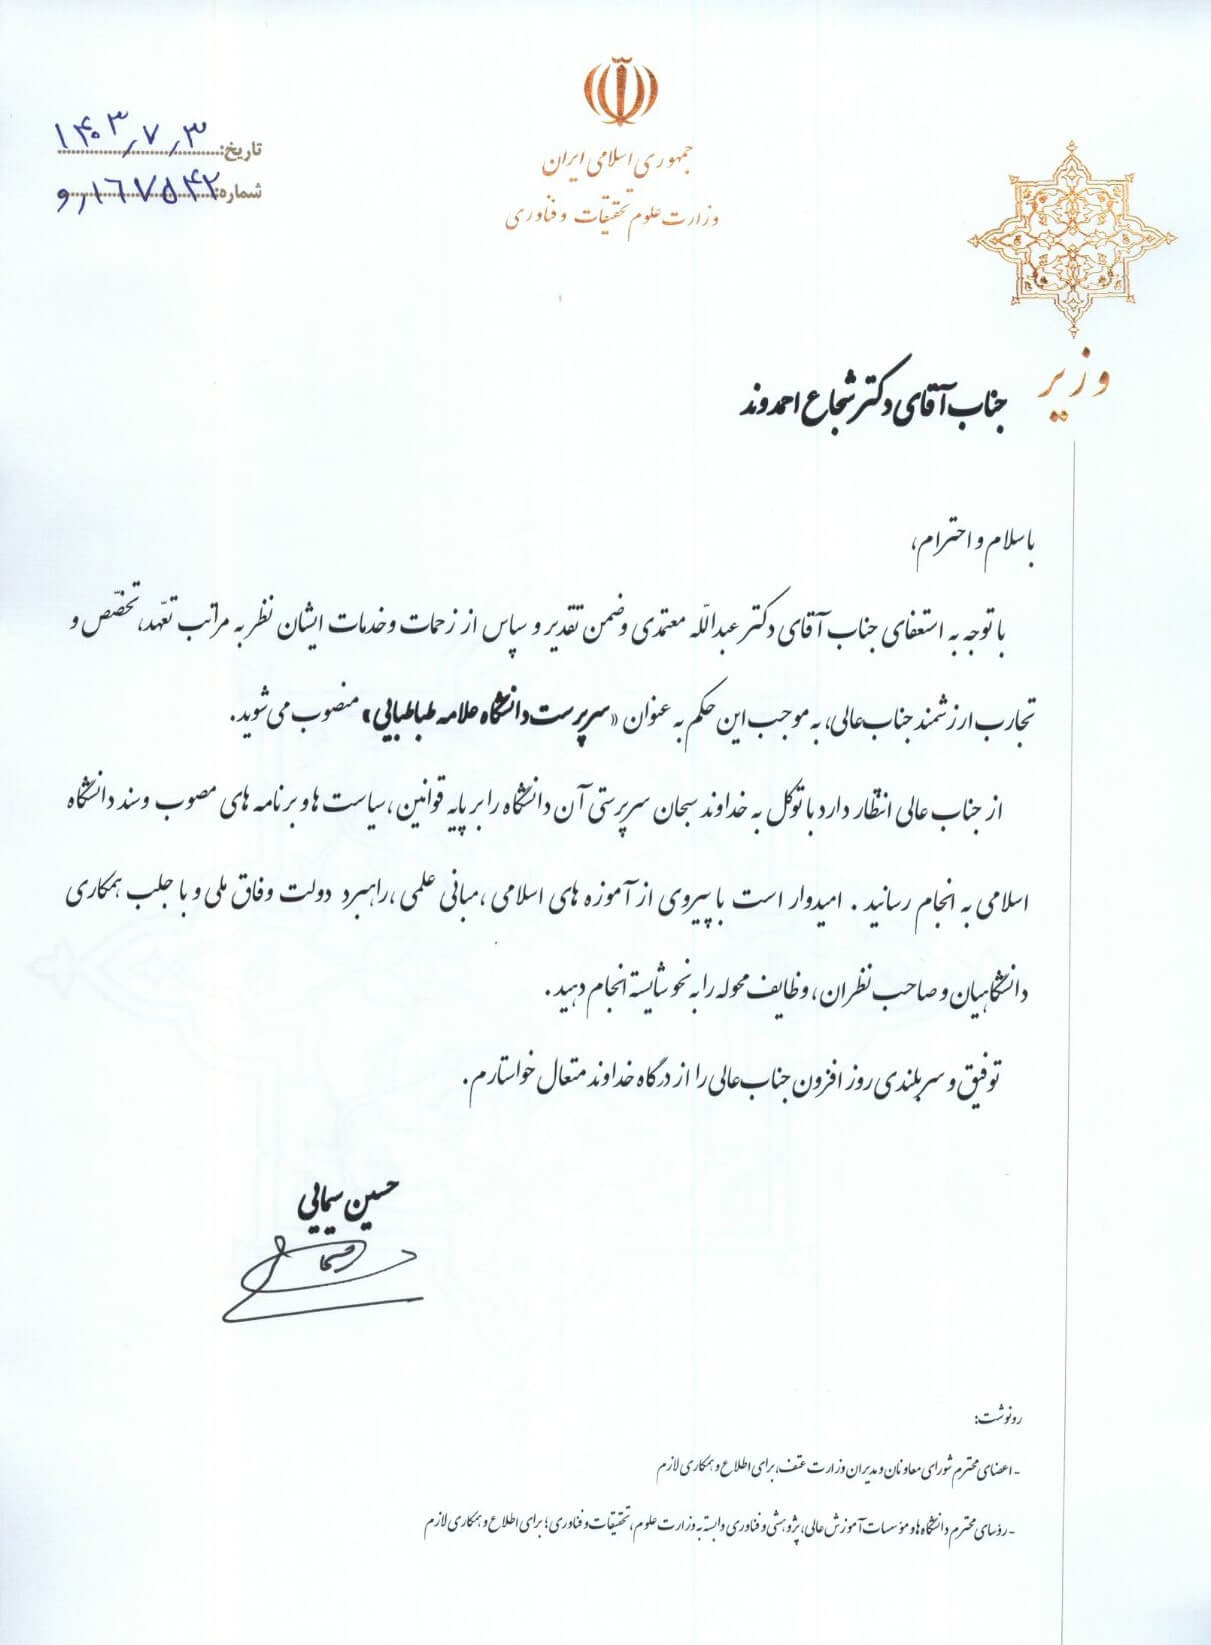 جمهوری اسلامی ایران
وزارت علوم تحقیقات و فناوری
تاریخ: ۱۴۰۳٫۷٫۳
شماره: ۱۶۷۵۴۲٫و
وزیر
جناب آقای دکتر شجاع احمدوند
با سلام و احترام،
با توجه به استعفای جناب آقای دکتر عبداللّه معتمدی و ضمن تقدیر و سپاس از زحمات و خدمات ایشان نظر به مراتب تعهّد، تخصّص و
تجارب ارزشمند جناب‌عالی، به موجب این حکم به عنوان «سرپرست دانشگاه علامه طباطبایی» منصوب می‌شوید.
از جناب عالی انتظار دارد با توکل به خداوند سبحان سرپرستی آن دانشگاه را بر پایه قوانین، سیاست ها و برنامه های مصوب و سند دانشگاه
اسلامی به انجام رسانید. امیدوار است با پیروی از آموزه های اسلامی، مبانی علمی، راهبرد دولت وفاق ملی و با جلب همکاری
دانشگاهیان و صاحب نظران، وظایف محوله را به نحو شایسته انجام دهید.
توفیق و سربلندی روز افزون جناب‌عالی را از درگاه خداوند متعال خواستارم.
حسین سیمایی
رونوشت:
- اعضای محترم شورای معاونان و مدیران وزارت عتف، برای اطلاع و همکاری لازم
- رؤسای محترم دانشگاه ها و مؤسسات آموزش عالی، پژوهشی و فناوری وابسته به وزارت علوم، تحقیقات و فناوری؛ برای اطلاع و همکاری لازم